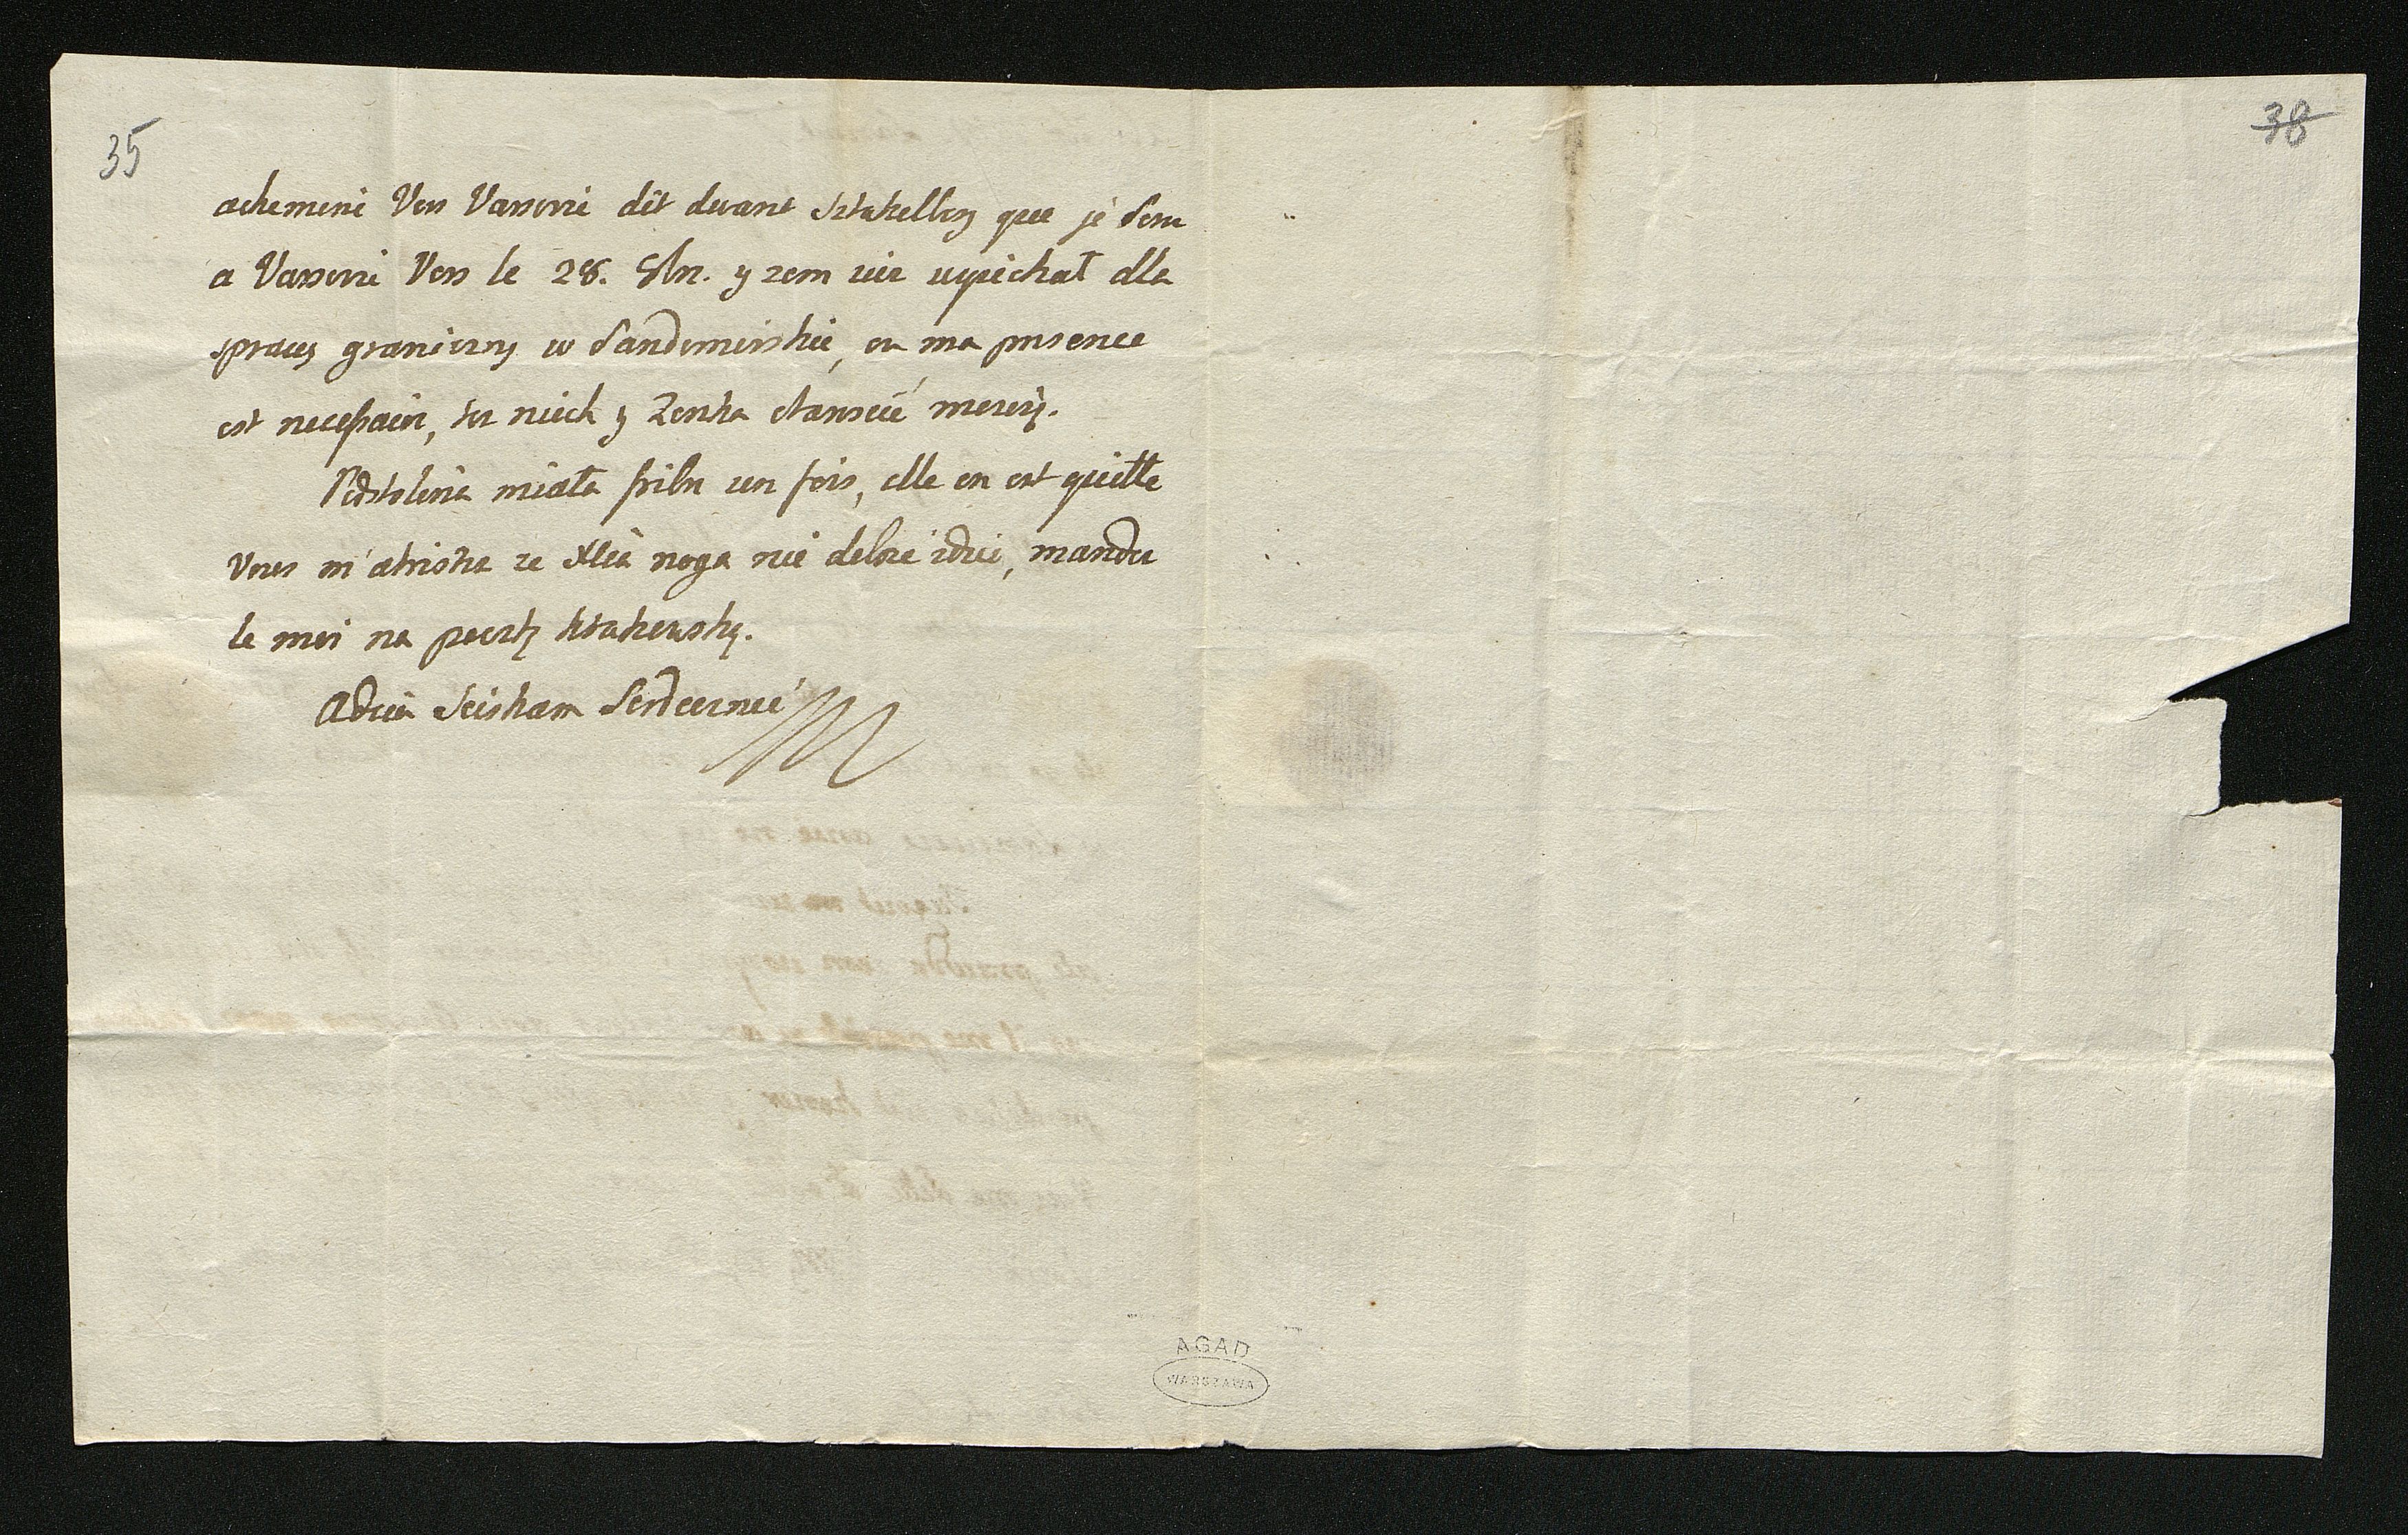 35
38
achemine Vers Varsovie dit devant Sztakelberg que je serai
a Varsovie Vers le 28. 8br. y zem nie wyiechał dla
sprawy graniczny w Sandomirskie, ou ma presence
est necessaire, ter niech y Zonka stanście mereiz.
Podstolina miała febre une fois, elle en est quitte
Vous m'atriste ze Xcia noga nie dobrze idzie, mandez
le moi na pocztę Krakowską.
Adieu Sciskam Serdecznie
M
AGAD
WARSZAWA